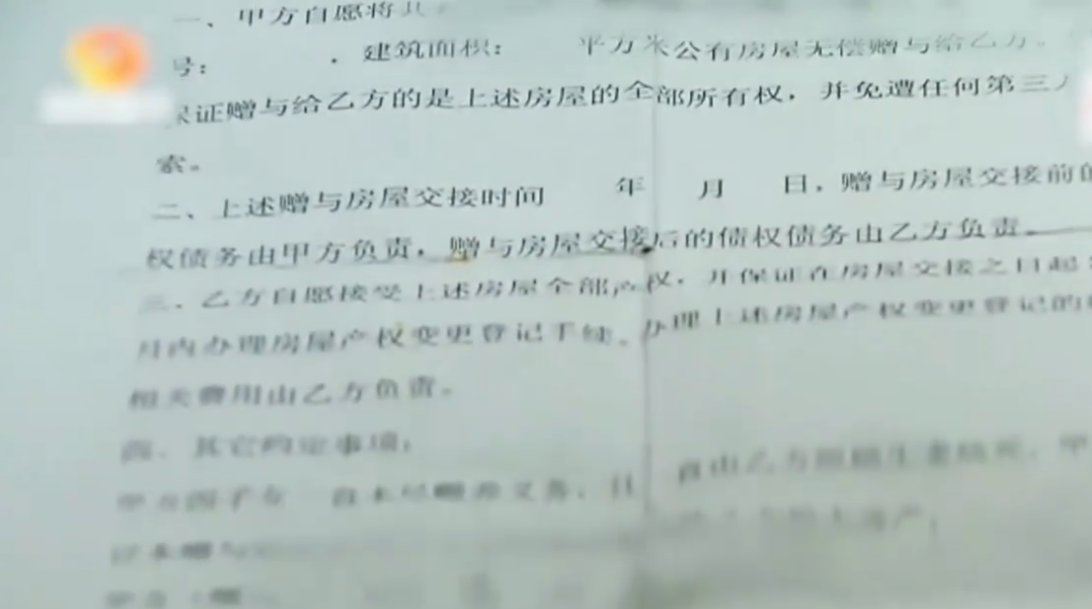 一、甲方自愿将其
号： ． 建筑面积： 平方米公有房屋无偿赠与给乙方。
保证赠与给乙方的是上述房屋的全部所有权，并免遭任何第三人
索。
二、上述赠与房屋交接时间 年 月 日，赠与房屋交接前的
权债务由甲方负责，赠与房屋交接后的债权债务由乙方负责。
三、乙方自愿接受上述房屋全部产权，并保证在房屋交接之日起
月内办理房屋产权变更登记手续。办理上述房屋产权变更登记的
相关费用由乙方负责。
四、其它约定事项：
甲方因子女一直未尽赡养义务，且 直由乙方照顾生老病死，甲